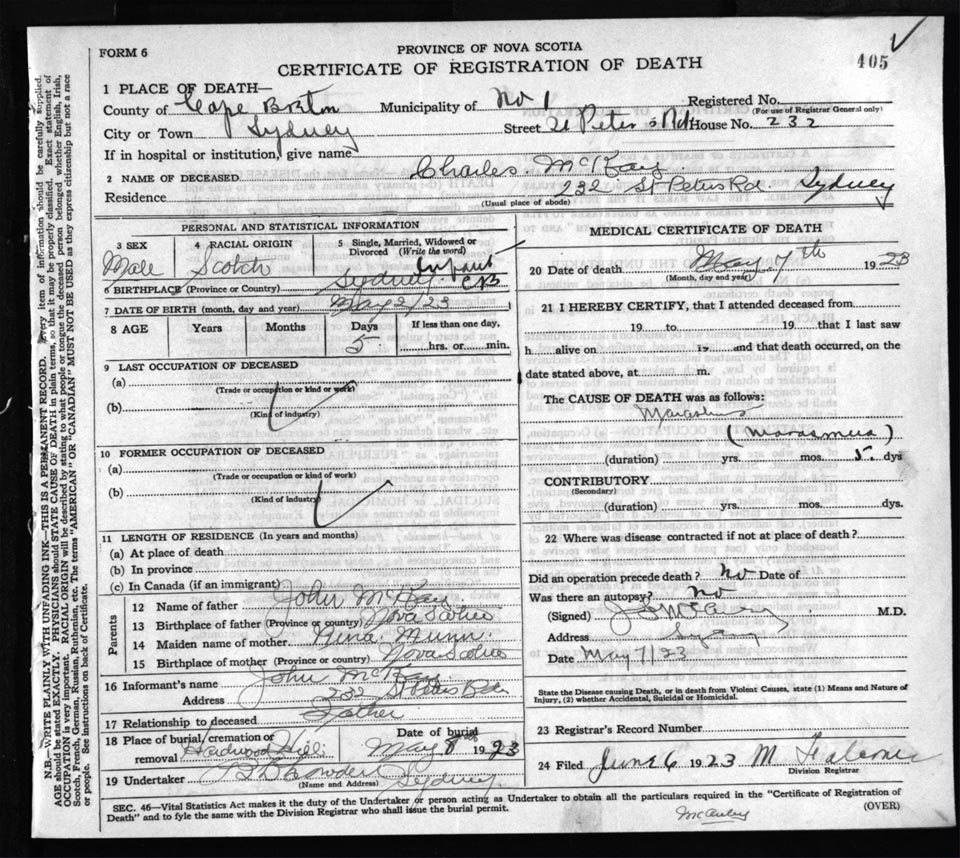 FORM 6
PROVINCE OF NOVA SCOTIA
CERTIFICATE OF REGISTRATION OF DEATH
405
1 PLACE OF DEATH—
County of Cape Breton Municipality of No 1 Registered No.
(For use of Registrar General only)
City or Town Sydney Street St Peter's Rd House No. 232
If in hospital or institution, give name
2 NAME OF DECEASED Charles McKay
Residence 232 St Peters Rd. Sydney
(Usual place of abode)
PERSONAL AND STATISTICAL INFORMATION
3 SEX 4 RACIAL ORIGIN 5 Single, Married, Widowed or Divorced (Write the word)
Male Scotch Infant
6 BIRTHPLACE (Province or Country) Sydney CB
7 DATE OF BIRTH (month, day and year) May 2/23
8 AGE Years Months Days If less than one day,
5 hrs. or min.
9 LAST OCCUPATION OF DECEASED
(a)
(Trade or occupation or kind of work)
(b)
(Kind of industry)
10 FORMER OCCUPATION OF DECEASED
(a)
(Trade or occupation or kind of work)
(b)
(Kind of industry)
11 LENGTH OF RESIDENCE (In years and months)
(a) At place of death
(b) In province
(c) In Canada (if an immigrant)
Parents
12 Name of father John McKay
13 Birthplace of father (Province or country) Nova Scotia
14 Maiden name of mother Munn
15 Birthplace of mother (Province or country) Nova Scotia
16 Informant's name John McKay
Address 232 St Peters Rd
17 Relationship to deceased Father
18 Place of burial, cremation or removal Hardwood Hill Date of burial May 8th 1923
19 Undertaker Sydney.
(Name and Address)
MEDICAL CERTIFICATE OF DEATH
20 Date of death May 7th 1923
(Month, day and year)
21 I HEREBY CERTIFY, that I attended deceased from
19 to 19 that I last saw
h alive on 19 and that death occurred, on the
date stated above, at m.
The CAUSE OF DEATH was as follows:
Marasmus
(Marasmus)
(duration) yrs. mos. 5 dys
CONTRIBUTORY
(Secondary)
(duration) yrs. mos. dys.
22 Where was disease contracted if not at place of death?
Did an operation precede death? No Date of
Was there an autopsy? No
(Signed) M.D.
Address Sydney
Date May 7/23
State the Disease causing Death, or in death from Violent Causes, state (1) Means and Nature of
Injury, (2) whether Accidental, Suicidal or Homicidal.
23 Registrar's Record Number
24 Filed June 6 1923 M
Division Registrar
SEC. 46—Vital Statistics Act makes it the duty of the Undertaker or person acting as Undertaker to obtain all the particulars required in the "Certificate of Registration of
Death" and to fyle the same with the Division Registrar who shall issue the burial permit.
(OVER)
N.B.—WRITE PLAINLY WITH UNFADING INK—THIS IS A PERMANENT RECORD. Every item of information should be carefully supplied.
AGE should be stated EXACTLY. PHYSICIANS should STATE CAUSE OF DEATH in plain terms, so that it may be properly classified. Exact statement of
OCCUPATION is very important. RACIAL ORIGIN will be described by stating to what people or tongue the deceased person belonged whether English, Irish,
Scotch, French, German, Russian, Ruthenian, etc. The terms "AMERICAN" OR "CANADIAN" MUST NOT BE USED as they express citizenship but not a race
or people. See instructions on back of Certificate.